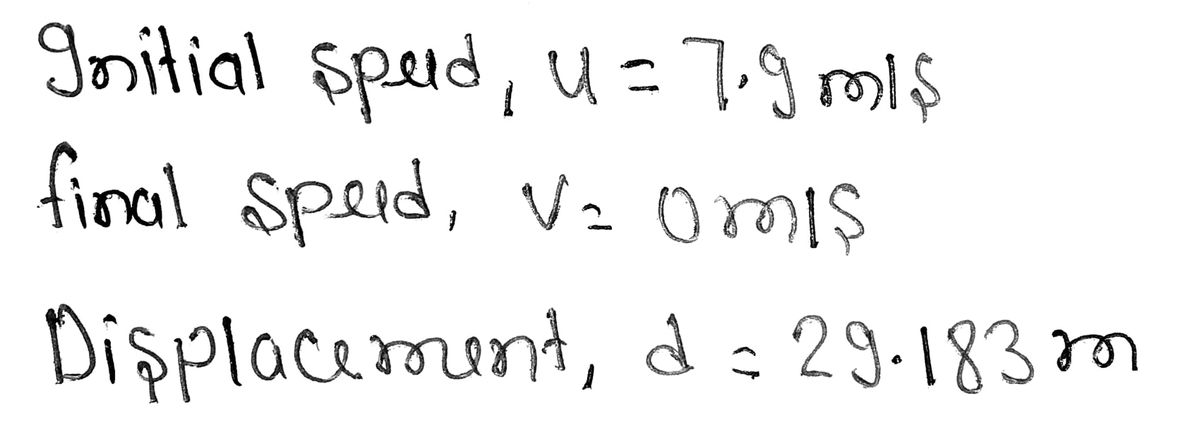 Initial speed, u = 7.9 m/s
final speed, v = 0 m/s
Displacement, d = 29.183 m